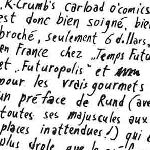 , K-Crumb's carload o'comics
est donc bien soigné, bien
broché, seulement 6 dollars,
en France chez "Temps Futu
et "Futuropolis" et
pour les vrais gourmets
un préface de Kund (ave
toutes ses majuscules aux
places inattendues!) qui e
plus drole que le